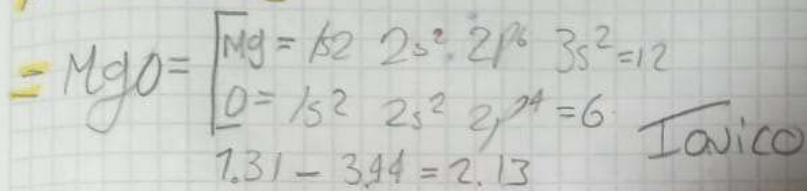 = MgO = Mg = 1s2 2s² 2p⁶ 3s² = 12
O = 1s² 2s² 2p⁴ = 6
1.31 - 3.44 = 2.13
Iovico